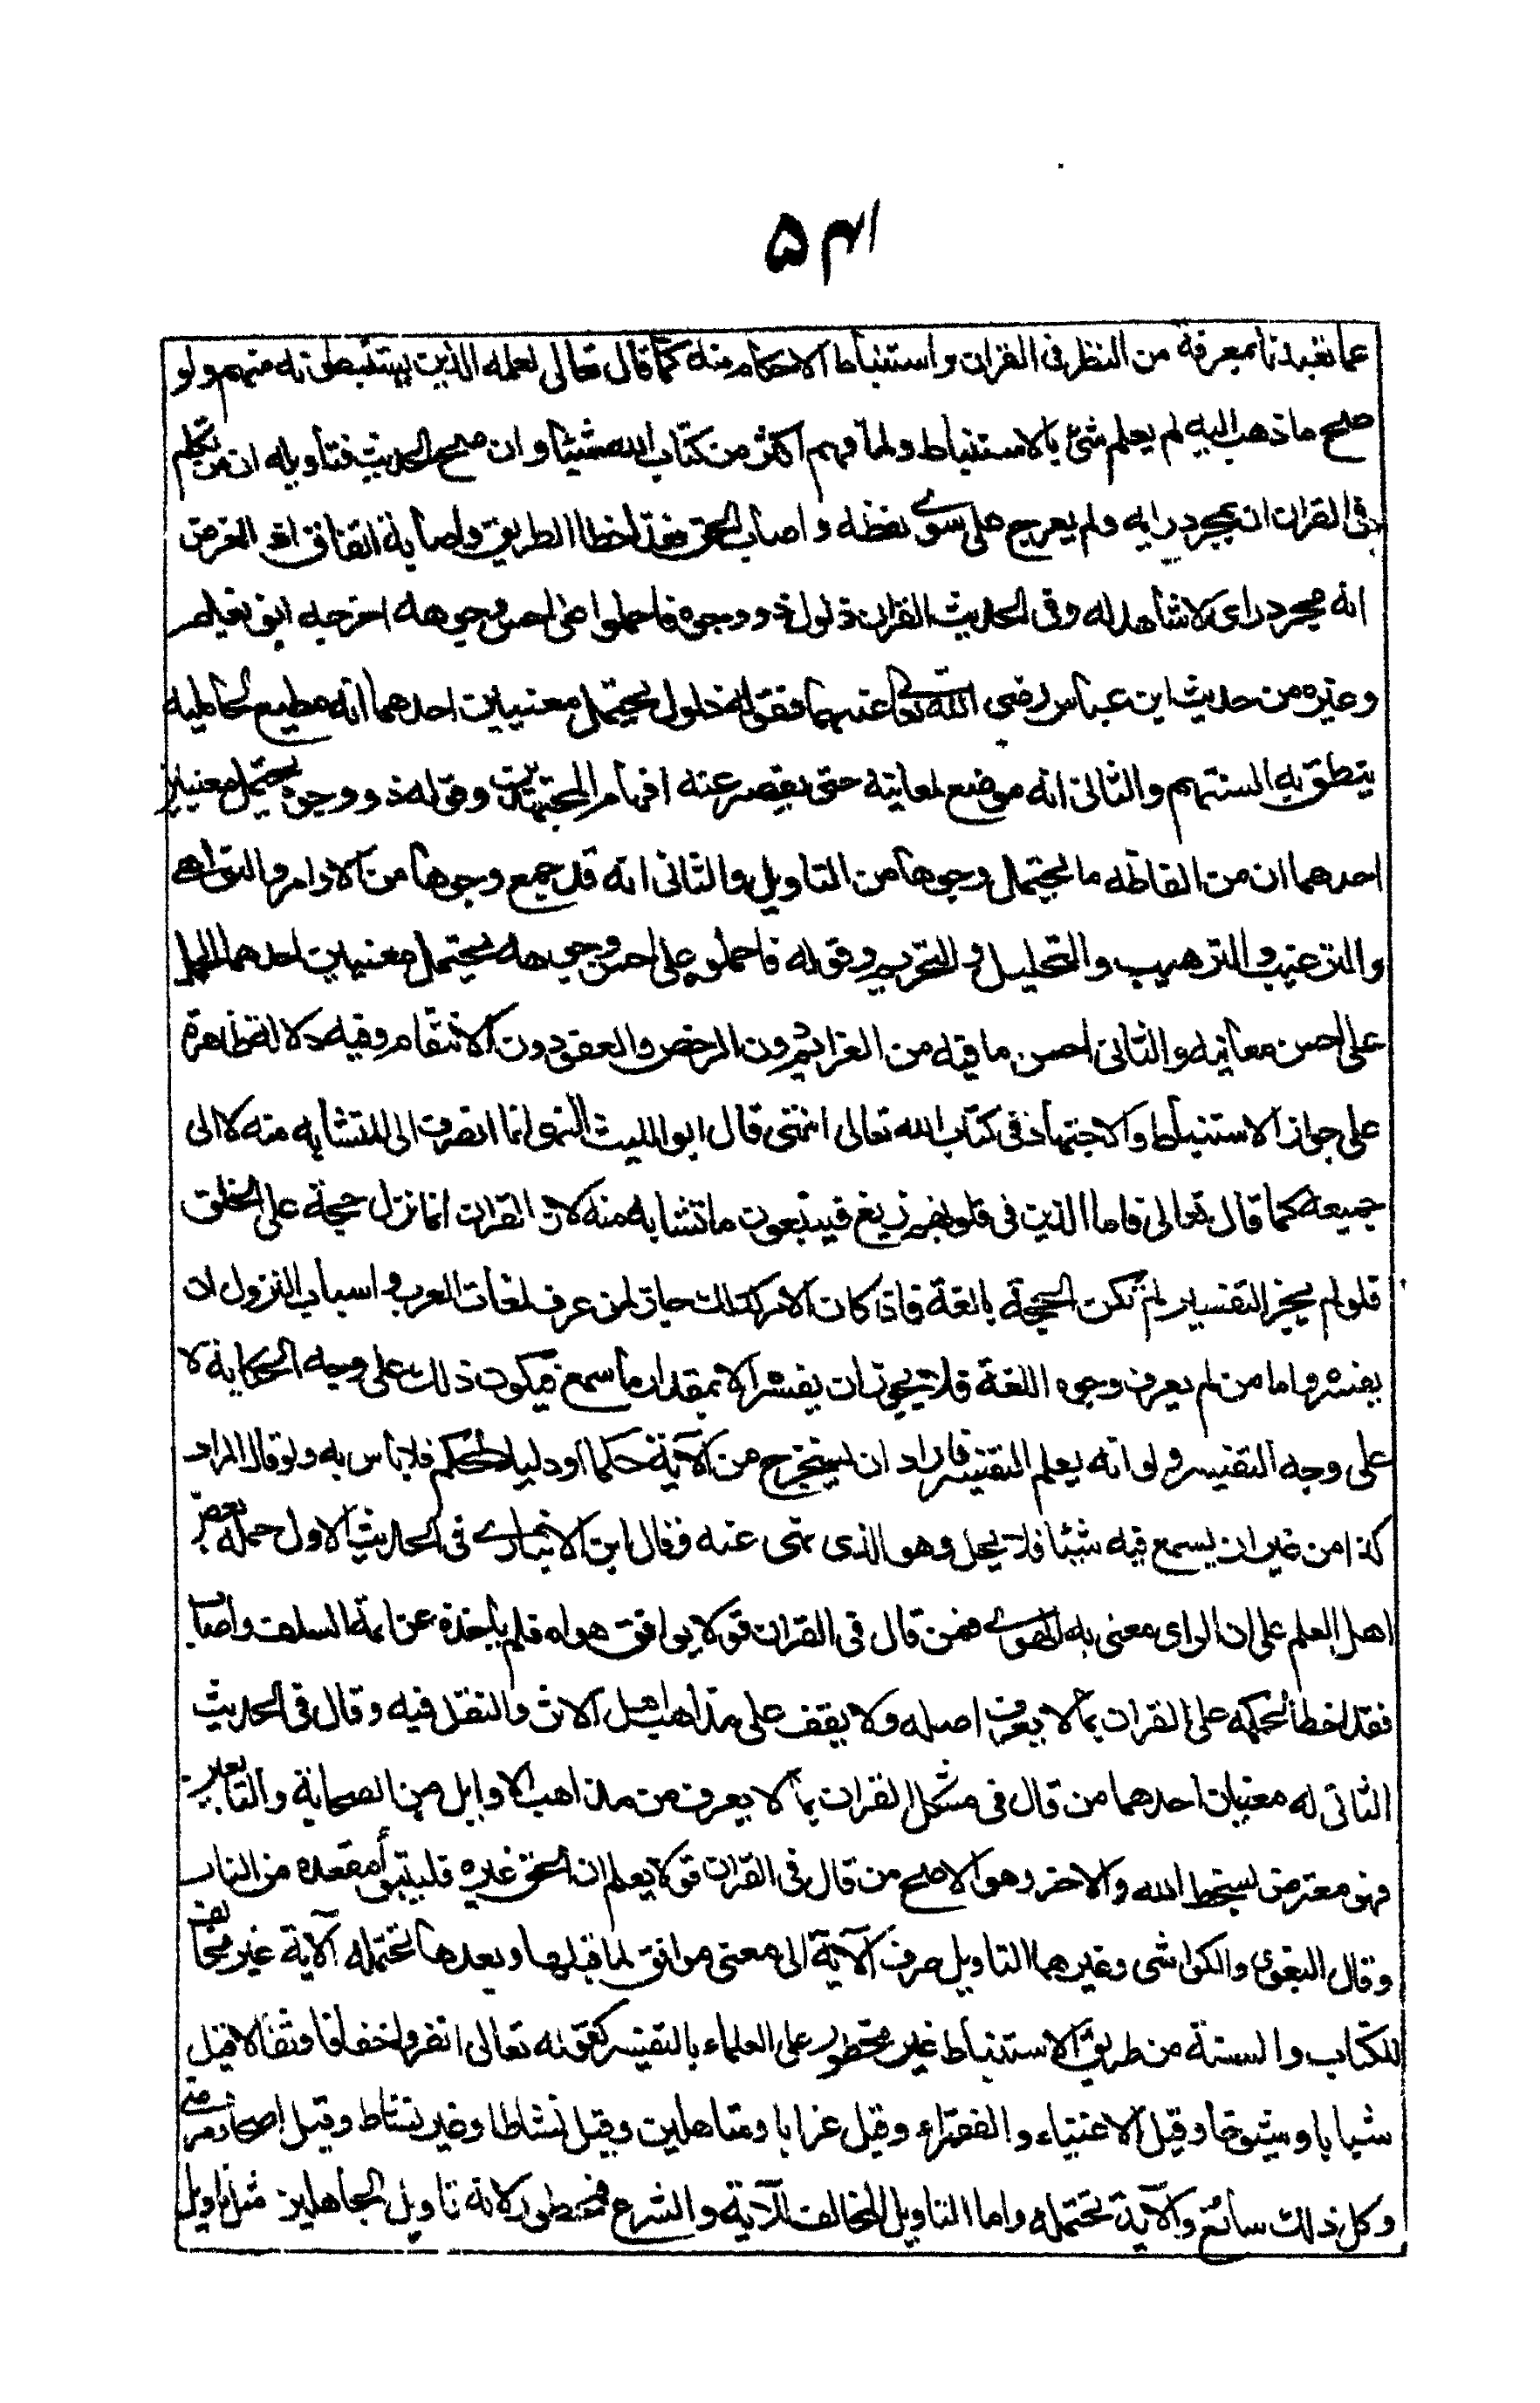 ۵۴۱
عما تعبدنا بمعرفة من النظر فى القران واستنباط الاحكام منه كما قال تعالى لعلمه الذين يستنبطونه منهم ولو
صح ما ذهب اليه لم يعلم شئ بالاستنباط ولما فهم اكثر من كتاب الله شيئا وان صح الحديث فتاويله ان من تكلم
فى القران ان بمجرد رايه ولم يعرج على سوى لفظه واصاب الحق فقد اخطا الطريق واصابة اتفاق اذ الغرض
انه مجرد راى لا شاهد له وفى الحديث القران ذلول ذو وجوه فاحملوا على احسن وجوهه اخرجه ابو نعيم
وغيره من حديث ابن عباس رضى الله تعالى عنهما فقوله ذلول يحتمل معنيين احدهما انه مطيع لحامليه
ينطق به السنتهم والثانى انه موضع لمعانيه حتى يقصر عنه افهام المجتهدين وقوله ذو وجوه يحتمل معنيين
احدهما ان من الفاظه ما يحتمل وجوها من التاويل والثانى انه قد جمع وجوها من الاوامر والنواهى
والترغيب والترهيب والتحليل والتحريم وقوله فاحملوه على احسن وجوهه يحتمل معنيين احدهما الحمل
على احسن معانيه والثانى احسن ما فيه من العزائم دون الرخص والعفو دون الانتقام وفيه دلالة ظاهرة
على جواز الاستنباط والاجتهاد فى كتاب الله تعالى انتهى قال ابو الليث النهى انما انصرف الى المتشابه منه لا الى
جميعه كما قال تعالى فاما الذين فى قلوبهم زيغ فيتبعون ما تشابه منه لان القران انما نزل حجة على الخلق
فلو لم يجز التفسير لم تكن الحجة بالغة فاذا كان الامر كذلك جاز لمن عرف لغات العرب و اسباب النزول ان
يفسره اما من لم يعرف وجوه اللغة فلا يجوز ان يفسر الا بمقدار ما سمع فيكون ذلك على وجه الحكاية لا
على وجه التفسير ولو انه يعلم التفسير فاراد ان يستخرج من الآية حكما او دليل الحكم فلا باس به ولو قال المراد
كذا من غير ان يسمع فيه شيئا فلا يحل وهو الذى نهى عنه فقال ابن الانبارى فى الحديث الاول حمله بعض
اهل العلم على ان الراى معنى به الهوى فمن قال فى القران قولا يوافق هواه فلم ياخذه عن ائمة السلف واصاب
فقد اخطا لحكمه على القران بما لا يعرف اصله ولا يقف على مذاهب اهل الاثر والنقل فيه وقال فى الحديث
الثانى له معنيان احدهما من قال فى مشكل القران بما لا يعرف من مذاهب الاوايل من الصحابة والتابعين
فهو معترض لسخط الله والاخر وهو الاصح من قال فى القران قولا يعلم ان الحق غيره فليتبوأ مقعده من النار
وقال البغوى والكواشى وغيرهما التاويل صرف الآية الى معنى موافق لما قبلها وبعدها تحتمله الآية غير مخالف
للكتاب والسنة من طريق الاستنباط غير محظور على العلماء بالتفسير كقوله تعالى انفروا خفافا وثقالا قيل
شبابا وشيوخا وقيل الاغنياء والفقراء وقيل عزابا ومتاهلين وقيل نشاطا وغير نشاط وقيل اصحاء ومرضى
وكل ذلك سائغ والآية تحتمله واما التاويل المخالف للآية والشرع فمحظور لانه تاويل الجاهلين مثل تاويل